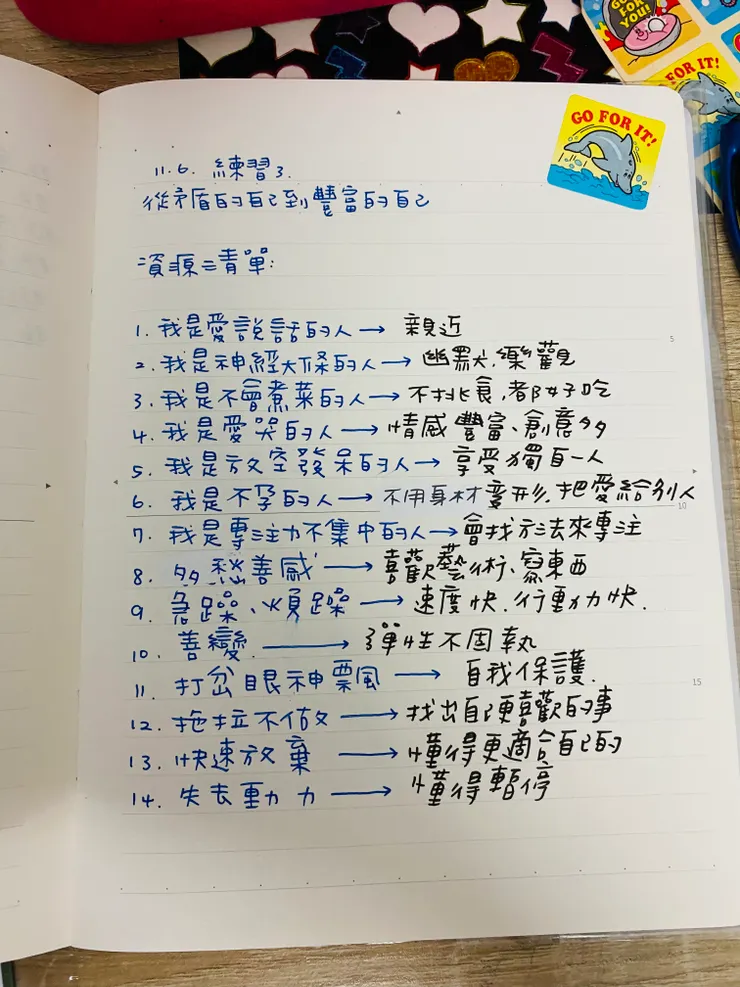 GO FOR YOU!
FOR IT!
GO FOR IT!
11.6. 練習3.
從矛盾的自己到豐富的自己
資源清單:
1. 我是愛說話的人 → 親近
2. 我是神經大條的人 → 幽默、樂觀
3. 我是不會煮菜的人 → 不挑食,都好吃
4. 我是愛哭的人 → 情感豐富、創意多
5. 我是放空發呆的人 → 享受獨自一人
6. 我是不孕的人 → 不用身材變形、把愛給別人
7. 我是專注力不集中的人 → 會找方法來專注
8. 多愁善感 → 喜歡藝術、寫東西
9. 急躁、煩躁 → 速度快、行動力快.
10. 善變 → 彈性不固執
11. 打岔眼神飄風 → 自我保護.
12. 拖拉不做 → 找出自己更喜歡的事
13. 快速放棄 → 懂得更適合自己的
14. 失去動力 → 懂得暫停
5
10
15